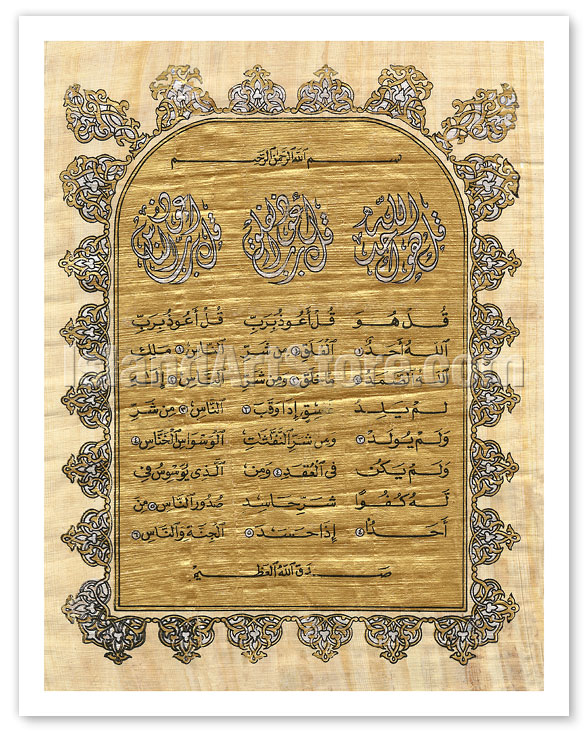 بسم الله الرحمن الرحيم
قل هو الله أحد
قل أعوذ برب الفلق
قل أعوذ برب الناس
قُلْ هُوَ
اللَّهُ أَحَدٌ ١
اللَّهُ الصَّمَدُ ٢
لَمْ يَلِدْ
وَلَمْ يُولَدْ ٣
وَلَمْ يَكُن
لَّهُ كُفُوًا
أَحَدٌ ٤
قُلْ أَعُوذُ بِرَبِّ
الْفَلَقِ ١ مِن شَرِّ
مَا خَلَقَ ٢ وَمِن شَرِّ
غَاسِقٍ إِذَا وَقَبَ ٣
وَمِن شَرِّ النَّفَّاثَاتِ
فِي الْعُقَدِ ٤ وَمِن
شَرِّ حَاسِدٍ
إِذَا حَسَدَ ٥
قُلْ أَعُوذُ بِرَبِّ
النَّاسِ ١ مَلِكِ
النَّاسِ ٢ إِلَٰهِ
النَّاسِ ٣ مِن شَرِّ
الْوَسْوَاسِ الْخَنَّاسِ ٤
الَّذِي يُوَسْوِسُ فِي
صُدُورِ النَّاسِ ٥ مِنَ
الْجِنَّةِ وَالنَّاسِ ٦
صدق الله العظيم
IslandArtStore.com